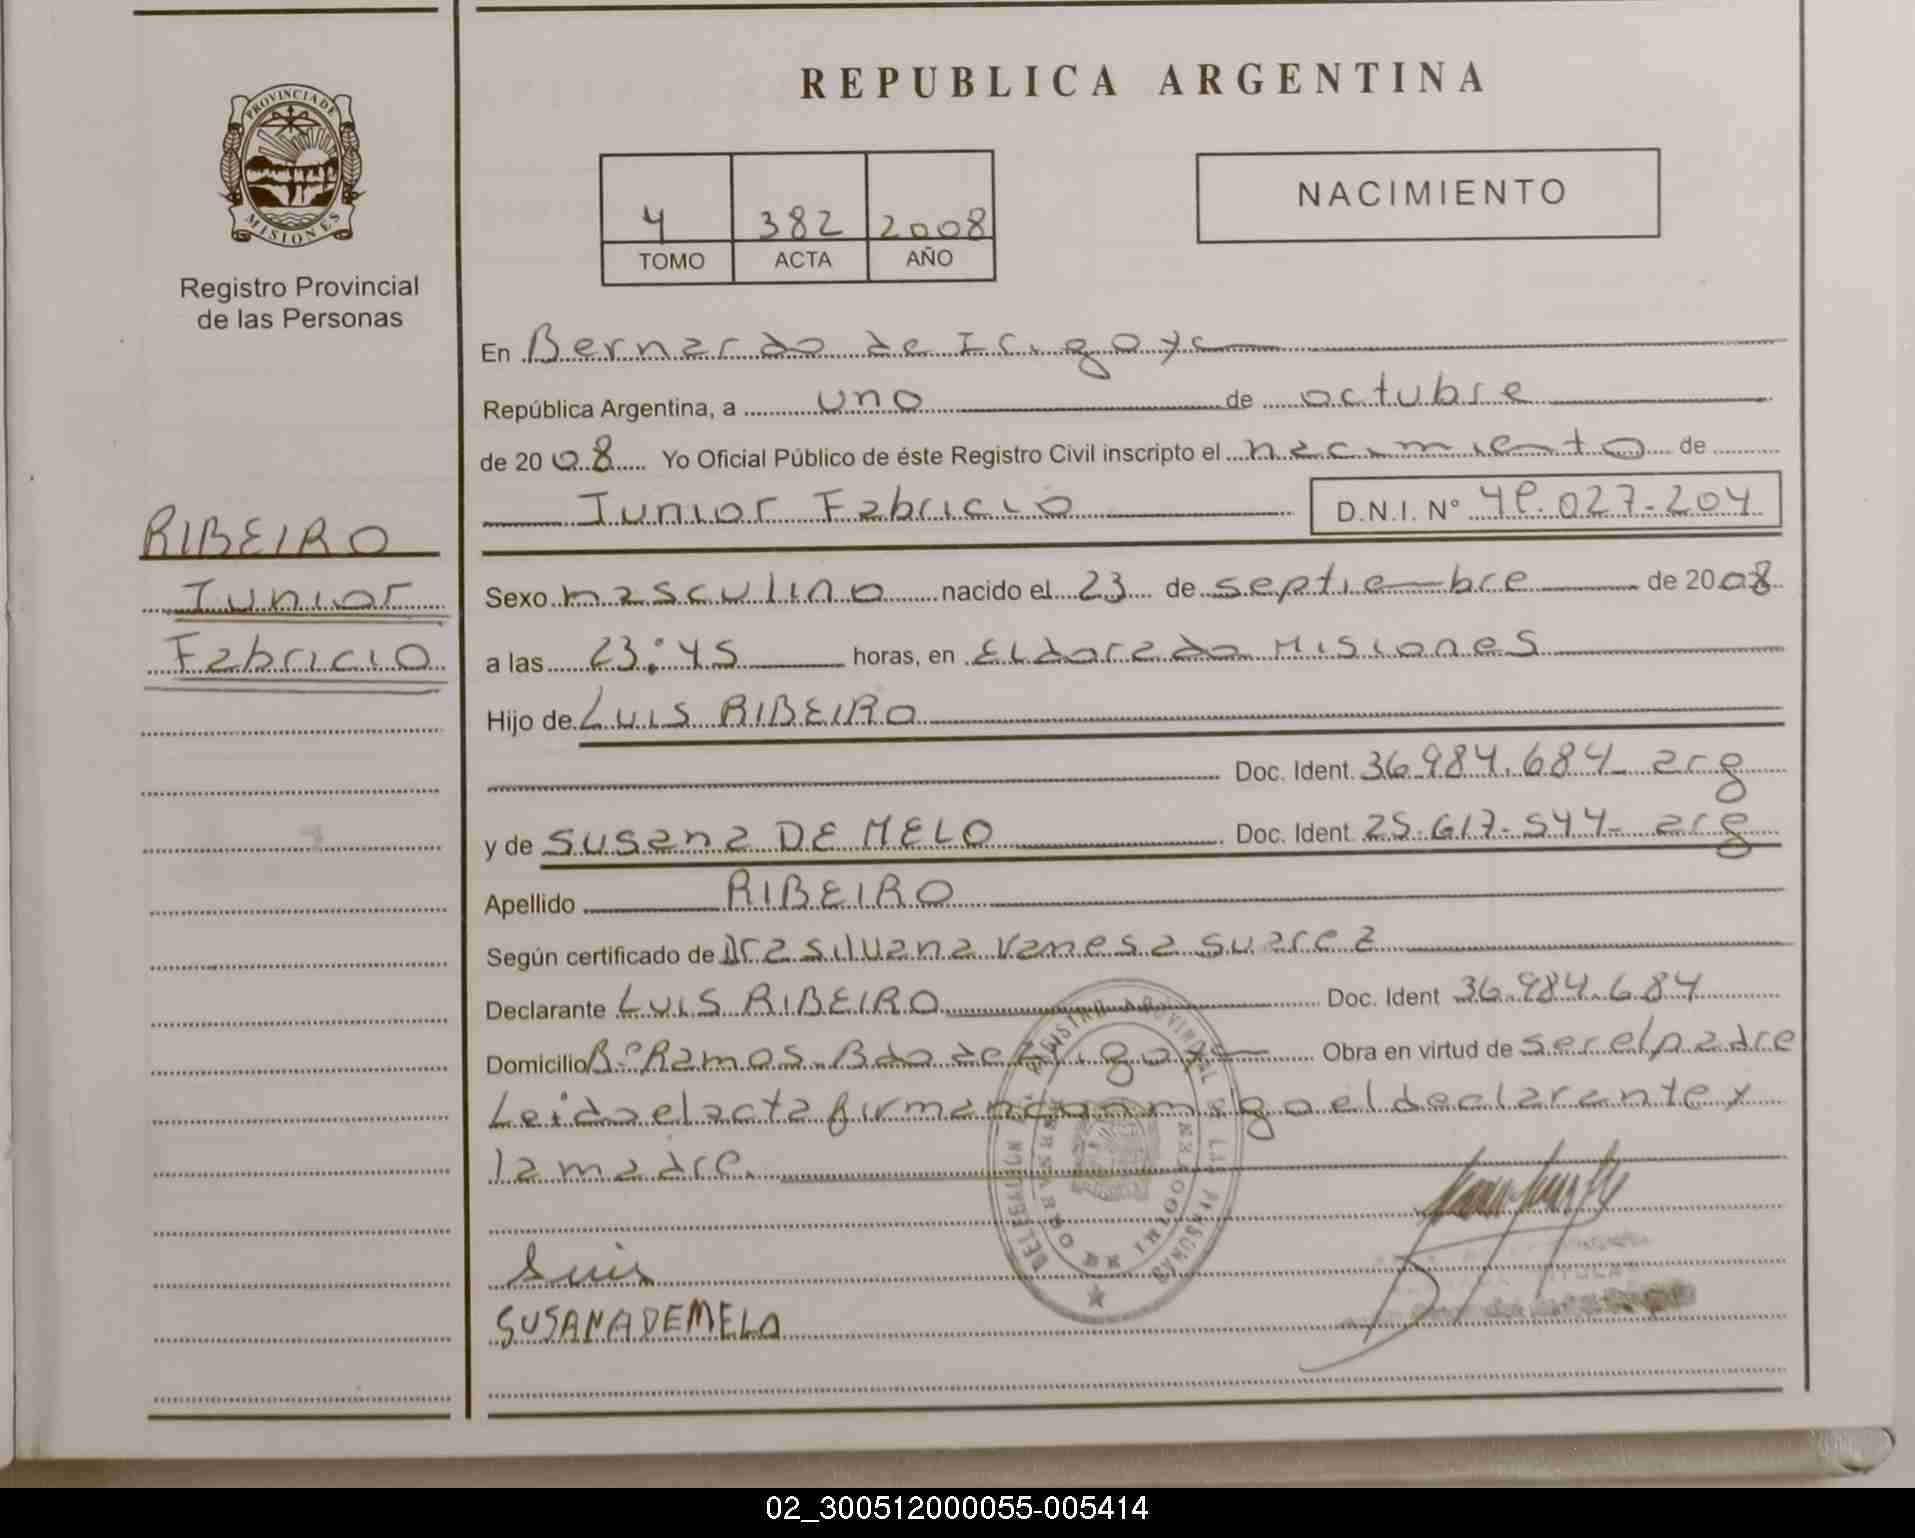 REPUBLICA ARGENTINA
PROVINCIA DE
MISIONES
Registro Provincial
de las Personas
4 382 2008
TOMO ACTA AÑO
NACIMIENTO
En Bernardo de Irigoye
República Argentina, a uno de octubre
de 2008 Yo Oficial Público de éste Registro Civil inscripto el nacimiento de
Junior Fabricio D.N.I. Nº 49.027-204
RIBEIRO
Junior
Fabricio
Sexo masculino nacido el 23 de septiembre de 2008
a las 23:45 horas, en Eldorado Misiones
Hijo de Luis RIBEIRO
Doc. Ident. 36.984.684- arg
y de Susana DE MELO Doc. Ident. 25.617-544- arg
Apellido RIBEIRO
Según certificado de Dra Silvana Vanesa Suarez
Declarante Luis RIBEIRO Doc. Ident 36.984.684
Domicilio Bº Ramos. Bdo de Irigoye Obra en virtud de ser el padre
Leida el acta firman conmigo el declarante y
la madre.
Luis
SUSANA DE MELO
02_300512000055-005414